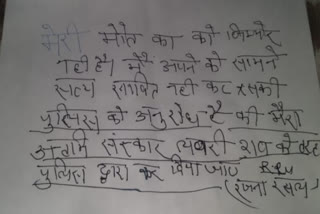 मेरी मौत का को जिम्मेर
नही है। मै अपने को सामने
सत्य साबित नही कर सकी
पुलिस को अनुरोध है की मेरा
अन्तीम संस्कार लावारी शव के तहत
पुलिस द्वारा कर दिया जाए
(रंजना